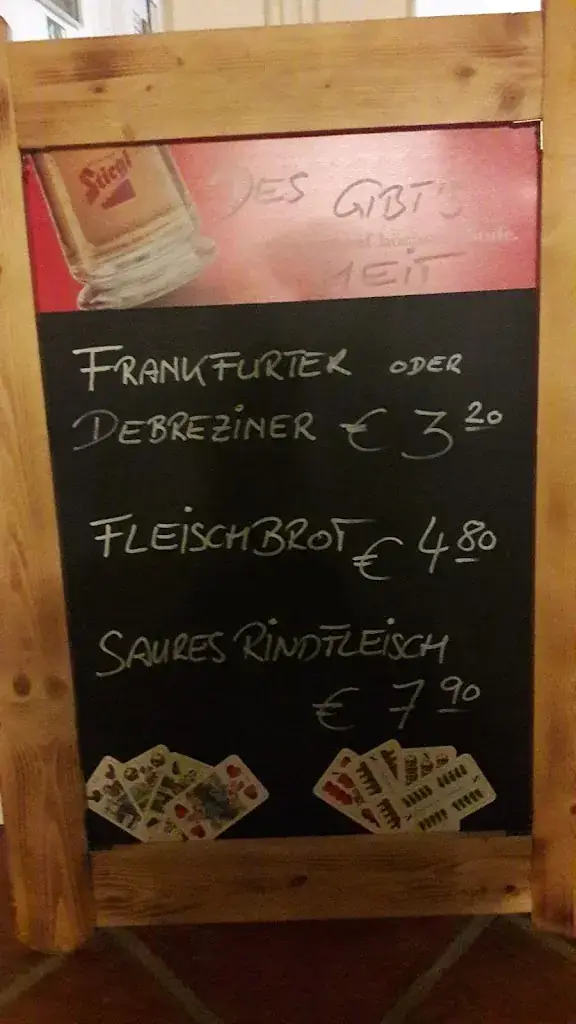 Stiegl
DES GIBT'S
HEIT
FRANKFURTER ODER
DEBREZINER € 3 20
FLEISCHBROT € 4 80
SAURES RINDFLEISCH
€ 7 90